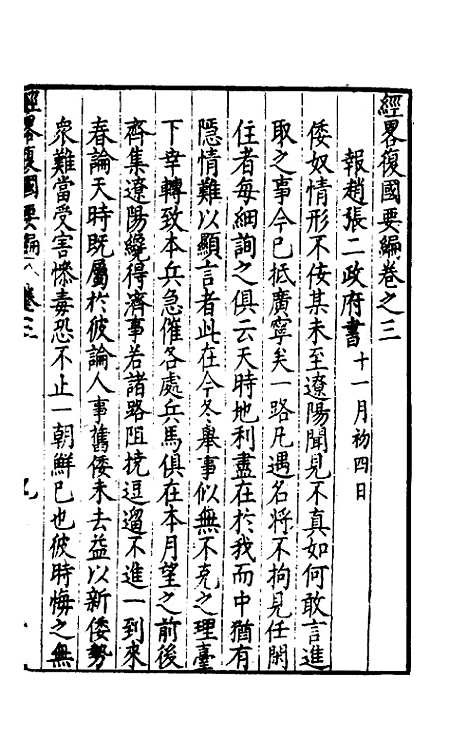 經畧復國要編卷之三
報趙張二政府書 十一月初四日
倭奴情形不佞某未至遼陽聞見不真如何敢言進
取之事今已抵廣寧矣一路凡遇名將不拘見任閑
住者每細詢之俱云天時地利盡在於我而中猶有
隱情難以顯言者此在今冬舉事似無不克之理臺
下幸轉致本兵急催各處兵馬俱在本月望之前後
齊集遼陽纔得濟事若諸路阻撓逗遛不進一到來
春論天時既屬於彼論人事舊倭未去益以新倭勢
衆難當受害慘毒恐不止一朝鮮已也彼時悔之無
經畧復國要編 卷三